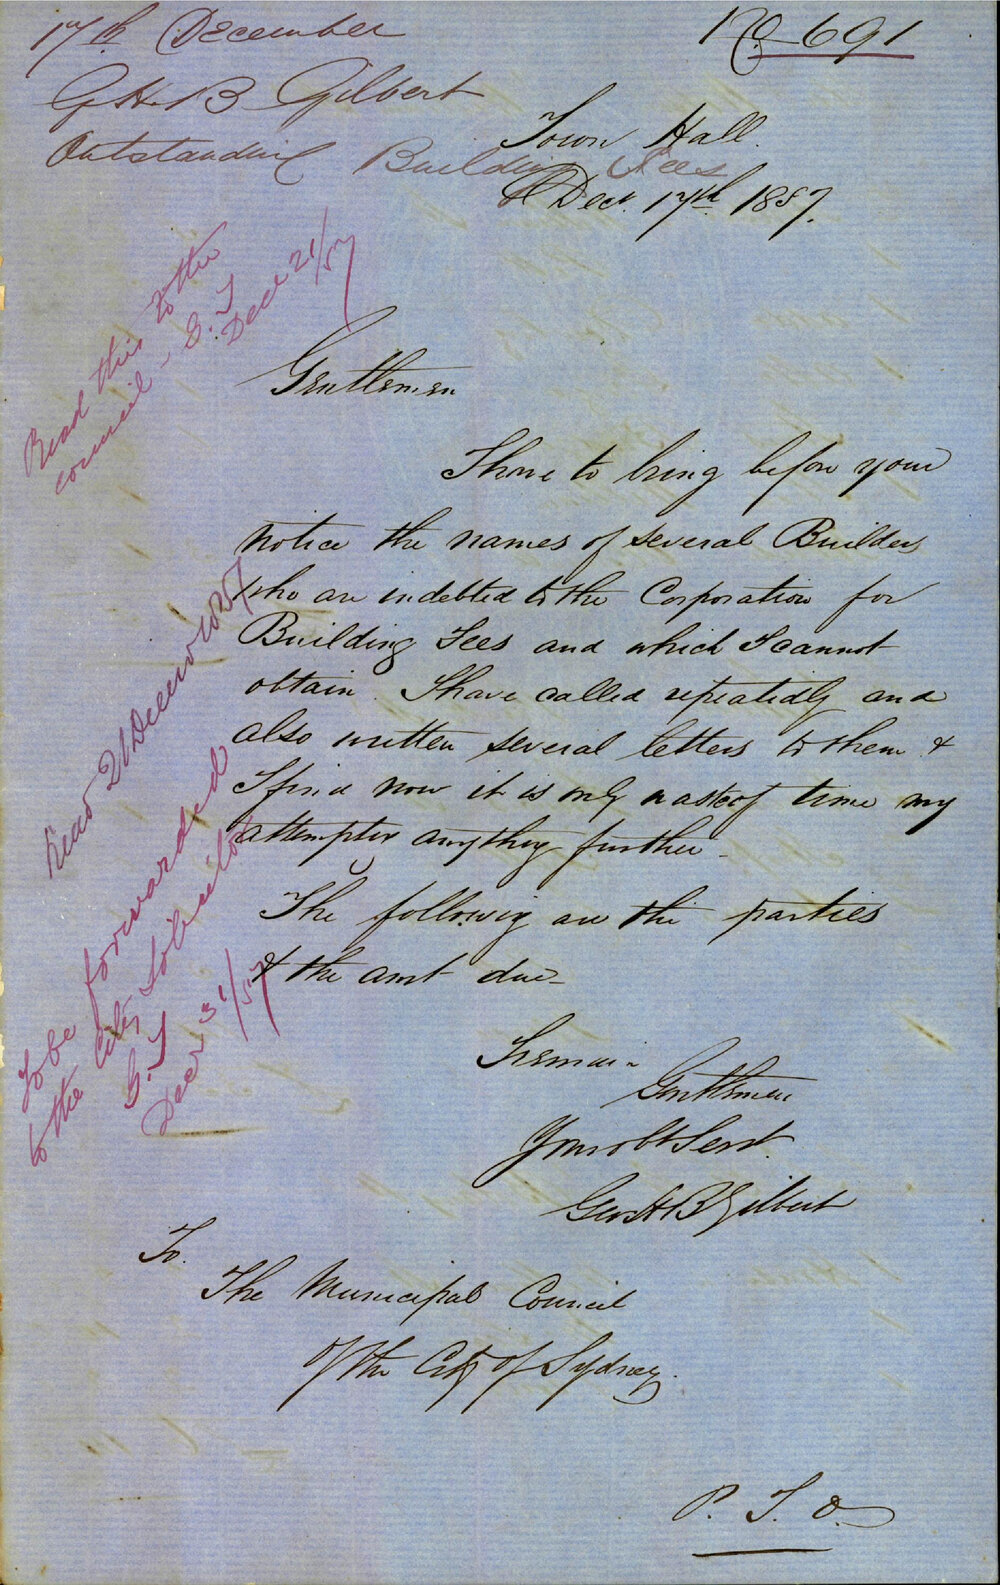 17th December
No 691
G.H.B Gilbert
Outstanding Building Fees
Town Hall.
Decr. 17th 1857.
Read this to the
council - G.T
Decr 21/57
Gentlemen
I have to bring before your
notice the names of several Builders
who are indebted to the Corporation for
Building Fees and which I cannot
obtain. I have called repeatedly and
also written several letters to them &
I find now it is only waste of time my
attempting anything further -
The following are the parties
& the amt due -
Read 21 December 1857
To be forwarded
to the City Solicitor
G.T
Decr 31/57
I remain
Gentlemen
Your obt Servt.
Geo H B Gilbert
To.
The Municipal Council
of the City of Sydney.
P. T. O.